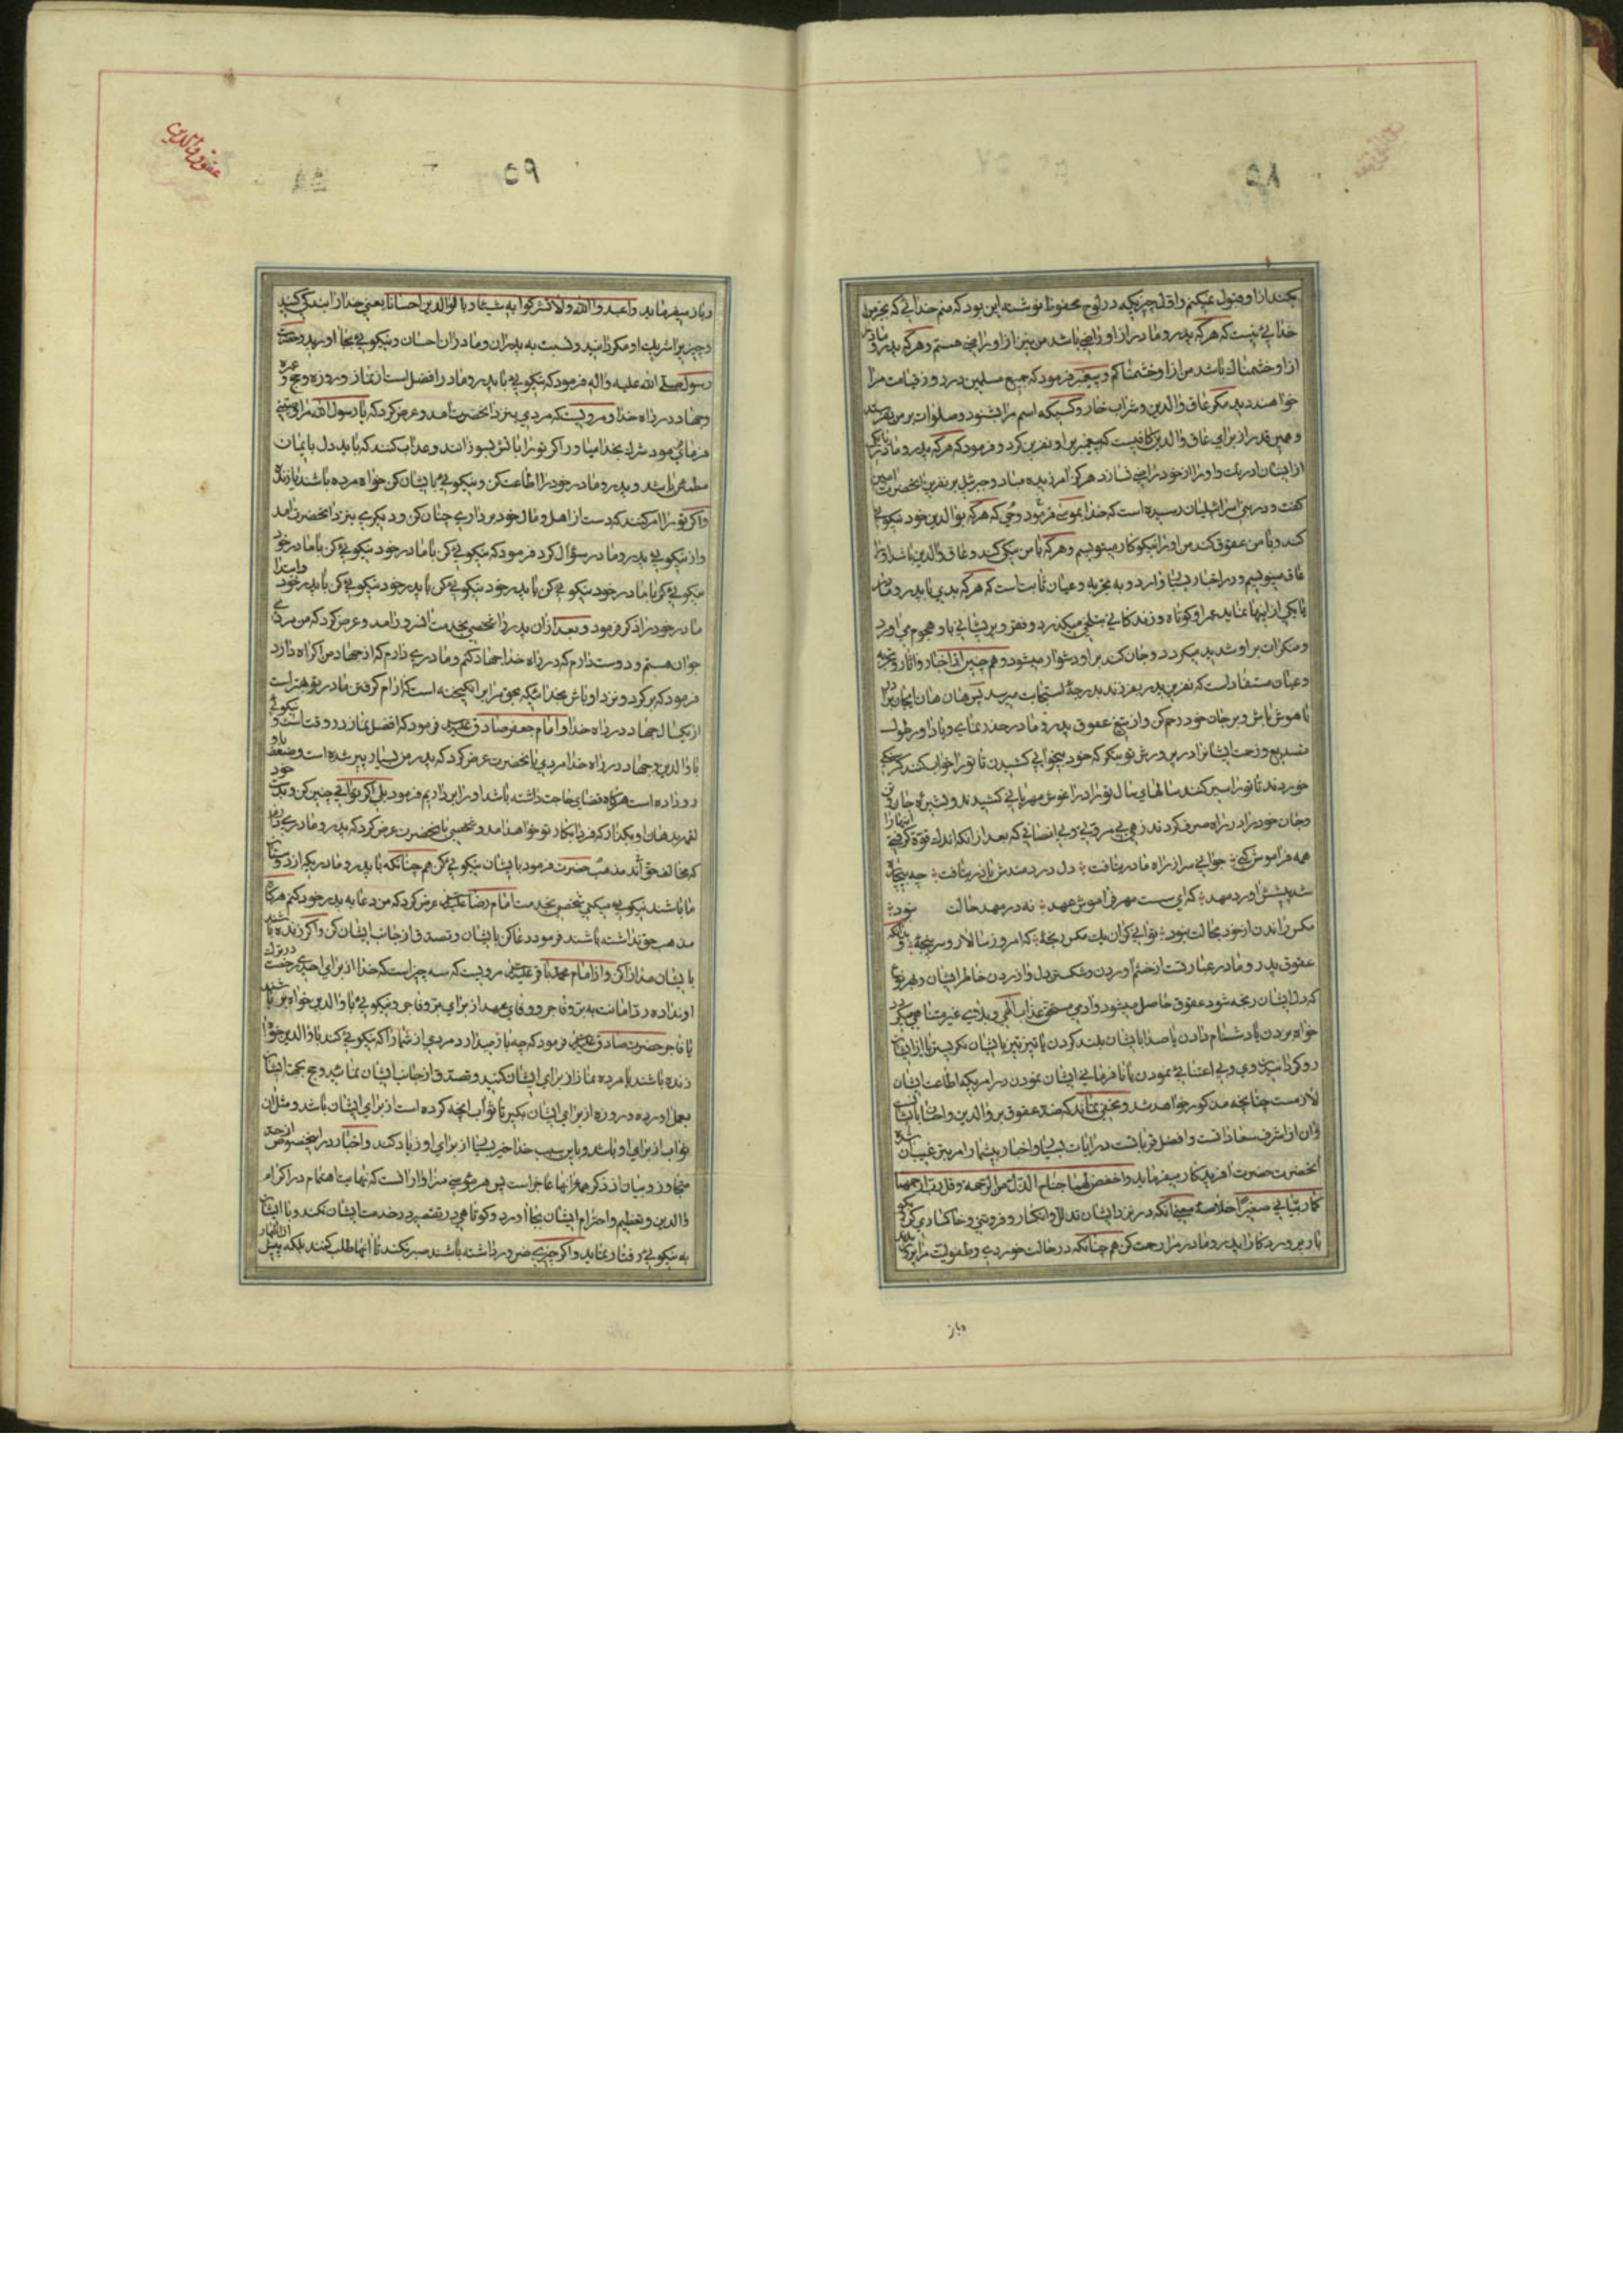 ۵۸
بکند از او قبول نمیکنم و اول چیزیکه در لوح محفوظ نوشته این بود که منم خدائی که بجز من
خدائی نیست که هر که پدر و مادر از او راضی باشد من نیز از او راضی هستم و هر که پدر و مادر
از او خشمناک باشد من از او خشمناکم و پیغمبر فرمود که جمیع مسلمین در روز قیامت مرا
خواهند دید مگر عاق والدین و شراب خوار و کسیکه اسم مرا بشنود و صلوات بر من نفرستد
و همین قدر از برای عاق والدین کافیست که پیغمبر بر او نفرین کرد و فرمود که هر که پدر و مادر یا یکی
از ایشان ادریت و او را از خود راضی نسازد هرگز آمرزیده مباد و جبرئیل بر نفرین آنحضرت آمین
گفت و در بنی اسرائیلیان رسیده است که خدا بموسی فرمود وحی که هر که بوالدین خود نیکوئی
کند و با من عقوق کند من او را نیکوکار مینویسم و هر که با من نیکی کند و عاق والدین باشد او را
عاق مینویسم و در اخبار بسیار وارد و به تجربه و عیان ثابت است که هر که بدی با پدر و مادر
یا یکی از اینها نماید عمر او کوتاه و زندگانی بتلخی میگذرد و فقر و پریشانی باو هجوم می آورد
و سکرات بر او شدید میگردد و جان کندن بر او دشوار میشود و هم چنین از اخبار و آثار و تجربه
و عیان مستفاد است که نفرین پدر بفرزند بدرجه استجابت میرسد پس هان هان ایجان برادر
با هوش باش و بر جان خود رحم کن و از تیغ عقوق پدر و مادر حذر نمای و یاد آور طول
تصدیع و زحمت ایشانرا در پرورش تو بنگر که خود بیخوابی کشیدن تا تو را خواب کنند گرسنگی
خوردند تا تو را سیر کنند سالهای سال تو را در آغوش مهربانی کشیدند و بشیره جان و تن
و جان خود را در راه صرف کردند زهی بی مروتی و بی انصافی که بعد از آنکه اندک قوة گرفتی اینها را
همه فراموش کنی جوانی سر از راه مادر بتافت دل دردمندش بآذر بتافت چه بیچاره
شد پیشش آورد مهد که ای سست مهر فراموش عهد نه در مهد حالت نبود
مگس راندن از خود مجالت نبود تو آنی کز آن یک مگس رنجه که امروز سالار و سرپنجه بدانکه
عقوق پدر و مادر عبارتست از خشم آوردن و شکستن دل و آزردن خاطر ایشان و بهر نوع
که دل ایشان رنجه شود عقوق حاصل میشود و آدمی مستحق عذاب الهی و بلای غیر متناهی میگردد
خواه بزدن یا دشنام دادن یا صدا بایشان بلند کردن یا تیز تیز بایشان نگریستن یا از ایشان
رو گردانیدن و بی اعتنائی نمودن یا نافرمانی ایشان نمودن در امریکه اطاعت ایشان
لازمست چنانچه مذکور خواهد شد و مخفی نماند که ضد عقوق بر والدین و احسان بایشان است
و آن از اشرف سعادات است و افضل قرباتست در آیات بسیار و اخبار بیشمار امر بترغیب آن شده
آنحضرت حضرت آفریدگار میفرماید و اخفض لهما جناح الذل من الرحمة و قل رب ارحمهما
کما ربیانی صغیرا خلاصه معنی آنکه در نزد ایشان تذلل و انکسار و فروتنی و خاکساری کن و بگو
بار پروردگارا پدر و مادر مرا رحمت کن هم چنانکه در حالت خوردی و طفولیت مرا پروریدند
و باز
عقوق والدین
۵۹
و باز میفرماید و اعبدوا الله و لا تشرکوا به شیئا و بالوالدین احسانا یعنی خدا را بندگی کنید
و چیزیرا شریک او مگردانید و نسبت به پدران و مادران احسان و نیکوئی بجا آورید و حضرت
رسول صلی الله علیه و آله فرمود که نیکوئی با پدر و مادر افضل است از نماز و روزه و حج و عمره
و جهاد در راه خدا و مرویستکه مردی بنزد آنحضرت آمد و عرض کرد که یا رسول الله مرا وصیتی
فرمای فرمود شرک بخدا میاور اگر تو را باتش بسوزانند و عذاب کنند که باید دل بایمان
مطمئن باشد و پدر و مادر خود را اطاعت کن و نیکوئی بایشان کن خواه مرده باشند یا زنده
و اگر تو را امر کنند که دست از اهل و مال خود برداری چنان کن و دیگری بنزد آنحضرت آمد
و از نیکوئی پدر و مادر سؤال کرد فرمود که نیکوئی کن با مادر خود نیکوئی کن با مادر خود
نیکوئی کن با مادر خود نیکوئی کن با پدر خود نیکوئی کن با پدر خود نیکوئی کن با پدر خود و ابتدا
مادر خود را ذکر فرمود و بعد از آن پدر را شخصی بخدمت آنسرور آمد و عرض کرد که من مردی
جوان هستم و دوست دارم که در راه خدا جهاد کنم و مادری دارم که از جهاد من اکراه دارد
فرمود که برگرد و نزد او باش بخدائیکه بحق مرا برانگیخته است که آرام گرفتن مادر بتو بهتر است
از یکسال جهاد در راه خدا و امام جعفر صادق علیه السلام فرمود که افضل نماز در وقت است و نیکوئی
با والدین و جهاد در راه خدا مردی بآنحضرت عرض کرد که پدر من بسیار پیر شده است و ضعف باو
رو داده است هرگاه قضای حاجت داشته باشد او را برداریم فرمود بلی اگر توانی چنین کن و بدست خود
لقمه بدهان او بگذار که فردا بکار تو خواهد آمد و شخصی بآنحضرت عرض کرد که پدر و مادری دارم
که مخالف حق اند مذهب حضرت فرمود بایشان نیکوئی کن هم چنانکه با پدر و مادریکه از دوستان
ما باشند نیکوئی میکنی شخصی بخدمت امام رضا علیه السلام عرض کرد که من دعا به پدر خود کنم هرگاه
مذهب حق نداشته باشند فرمود دعا کن بایشان و تصدق از جانب ایشان کن و اگر زنده باشند
بایشان مدارا کن و از امام محمد باقر علیه السلام مرویست که سه چیز است که خدا از برای احدی رخصت
او نداده رد امانت به بر و فاجر و وفای عهد از برای بر و فاجر و نیکوئی با والدین خواه بر باشند
یا فاجر حضرت صادق علیه السلام فرمود که چه باز میدارد مردی از شما را که نیکوئی کند با والدین خواه
زنده باشند یا مرده نماز از برای ایشان کنید و تصدق از جانب ایشان نمائید و حج بجهت ایشان
بعمل آورده و روزه از برای ایشان بگیر تا ثواب آنچه کرده است از برای ایشان باشد و مثل آن
ثواب از برای او باشد و باین سبب خدا خیر بسیار از برای او زیاد کند و اخبار در اینخصوص از حد
متجاوز و بیان از ذکر همه آنها عاجز است پس هر مؤمنی سزاوار آنست که نهایت اهتمام در اکرام
والدین و تعظیم و احترام ایشان بجا آورد و کوتاهی در تقصیر در خدمت ایشان نکند و با ایشان
به نیکوئی رفتار نماید و اگر چیزی ضرور داشته باشند صبر نکند تا آنها طلب کنند بلکه پیش از اظهار